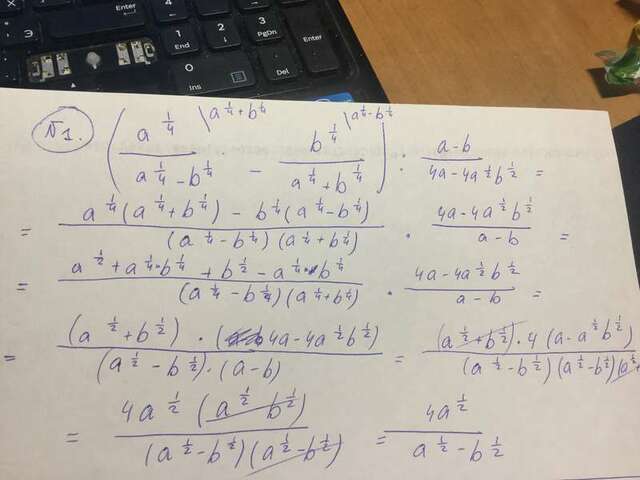 Э
Enter
1
End
2
↓
3
PgDn
Enter
0
Ins
.
Del
N1. ( a^{1/4} / (a^{1/4} - b^{1/4}) \a^{1/4}+b^{1/4} - b^{1/4} / (a^{1/4} + b^{1/4}) \a^{1/4}-b^{1/4} ) · (a-b) / (4a-4a^{1/2}b^{1/2}) =
= (a^{1/4}(a^{1/4}+b^{1/4}) - b^{1/4}(a^{1/4}-b^{1/4})) / ((a^{1/4}-b^{1/4})(a^{1/4}+b^{1/4})) · (4a-4a^{1/2}b^{1/2}) / (a-b) =
= (a^{1/2}+a^{1/4}·b^{1/4}+b^{1/2}-a^{1/4}·b^{1/4}) / ((a^{1/4}-b^{1/4})(a^{1/4}+b^{1/4})) · (4a-4a^{1/2}b^{1/2}) / (a-b) =
= ((a^{1/2}+b^{1/2})·(4a-4a^{1/2}b^{1/2})) / ((a^{1/2}-b^{1/2})·(a-b)) = ((a^{1/2}+b^{1/2})·4(a-a^{1/2}b^{1/2})) / ((a^{1/2}-b^{1/2})(a^{1/2}-b^{1/2})(a^{1/2}+
= (4a^{1/2}(a^{1/2}-b^{1/2})) / ((a^{1/2}-b^{1/2})(a^{1/2}-b^{1/2})) = 4a^{1/2} / (a^{1/2}-b^{1/2})